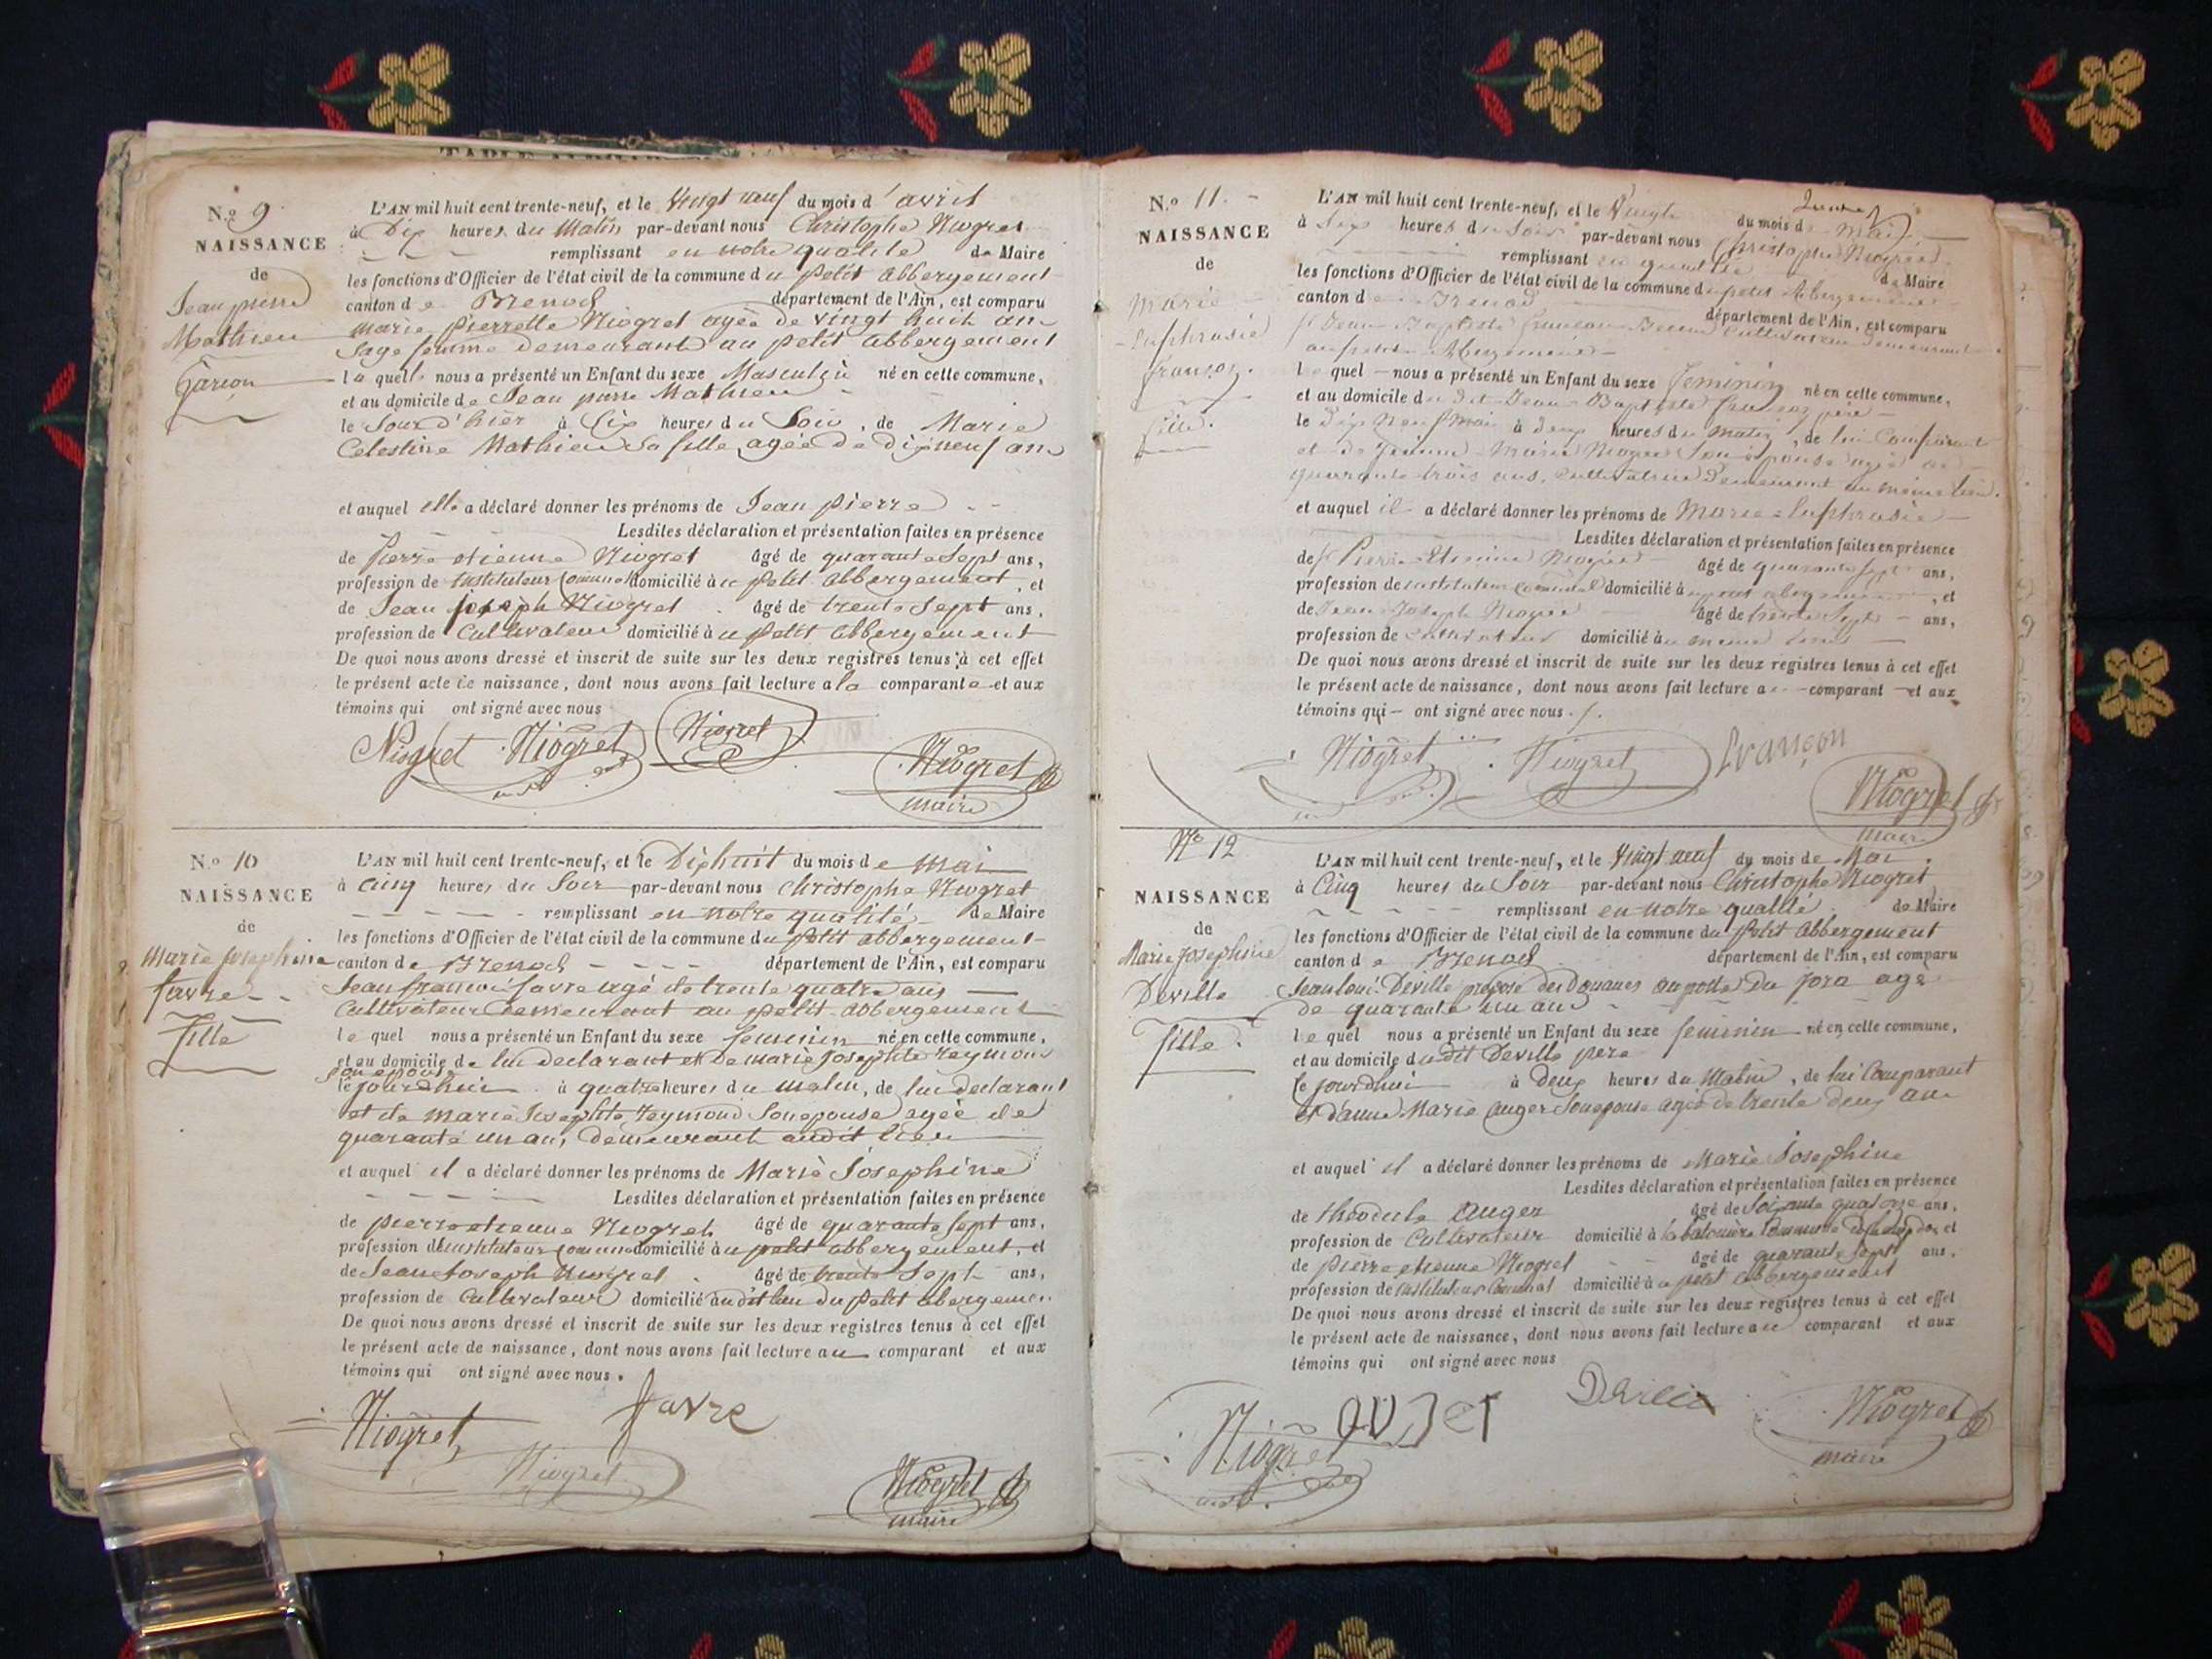 N.o 9
NAISSANCE
de
Jean pierre
Mathieu
Garçon
L'AN mil huit cent trente-neuf, et le Vingt neuf du mois d'avril
à Dix heures du Matin par-devant nous Christophe Niogret
remplissant en notre qualité de Maire
les fonctions d'Officier de l'état civil de la commune du petit abbergement
canton de Brenod département de l'Ain, est comparu
marie pierrette Niogret agée de vingt huit ans
Sage femme demeurant au petit abbergement
la quelle nous a présenté un Enfant du sexe Masculin né en cette commune,
et au domicile de Jean pierre Mathieu
le Jour d'hier à Six heures du Soir, de Marie
Celestine Mathieu Sa fille, agée de dix neuf ans
et auquel elle a déclaré donner les prénoms de Jean pierre
Lesdites déclaration et présentation faites en présence
de Pierre etienne Niogret âgé de quarante Sept ans,
profession de instituteur domicilié au petit abbergement, et
de Jean joseph Niogret âgé de trente Sept ans,
profession de Cultivateur domicilié au petit abbergement
De quoi nous avons dressé et inscrit de suite sur les deux registres tenus à cet effet
le présent acte de naissance, dont nous avons fait lecture a la comparante et aux
témoins qui ont signé avec nous
Niogret Niogret Niogret
Niogret
maire
N.o 10
NAISSANCE
de
Marie josephine
favre
fille
L'AN mil huit cent trente-neuf, et le Dixhuit du mois de Mai
à cinq heures du Soir par-devant nous Christophe Niogret
remplissant en notre qualité de Maire
les fonctions d'Officier de l'état civil de la commune du petit abbergement
canton de Brenod département de l'Ain, est comparu
Jean françois favre agé de trente quatre ans
Cultivateur demeurant au petit abbergement
le quel nous a présenté un Enfant du sexe feminin né en cette commune,
et au domicile de lui declarant et de marie josephte reymond
son epouse
le jourdhui à quatre heures du matin, de lui declarant
et de marie Josephte reymond Son epouse agée de
quarante un an, demeurant audit lieu
et auquel il a déclaré donner les prénoms de Marie Josephine
Lesdites déclaration et présentation faites en présence
de pierre etienne Niogret âgé de quarante sept ans,
profession d'instituteur domicilié au petit abbergement, et
de Jean Joseph Niogret âgé de trente Sept ans,
profession de Cultivateur domicilié audit lieu du petit abergement
De quoi nous avons dressé et inscrit de suite sur les deux registres tenus à cet effet
le présent acte de naissance, dont nous avons fait lecture au comparant et aux
témoins qui ont signé avec nous.
Niogret favre
Niogret
Niogret
maire
N.o 11.
NAISSANCE
de
Marie
Euphrasie
françon.
fille.
L'AN mil huit cent trente-neuf, et le Vingt du mois de Mai
à Six heures du Soir par-devant nous Christophe Niogret
remplissant en qualité de Maire
les fonctions d'Officier de l'état civil de la commune du petit Abergement
canton de Brenod département de l'Ain, est comparu
Jean Baptiste françon Cultivateur demeurant
au petit Abergement
le quel nous a présenté un Enfant du sexe feminin né en cette commune,
et au domicile du dit Jean Baptiste françon père
le Dix Neuf Mai à deux heures du matin, de lui Comparant
et de Jeanne Marie Niogret Son épouse agée de
quarante trois ans, cultivatrice Demeurant au même lieu.
et auquel il a déclaré donner les prénoms de Marie Euphrasie
Lesdites déclaration et présentation faites en présence
de Pierre Etienne Niogret âgé de quarante sept ans,
profession de instituteur communal domicilié au petit abergement, et
de Jean Joseph Niogret âgé de trente Sept ans,
profession de cultivateur domicilié au même
De quoi nous avons dressé et inscrit de suite sur les deux registres tenus à cet effet
le présent acte de naissance, dont nous avons fait lecture au comparant et aux
témoins qui ont signé avec nous.
Niogret Niogret françon
Niogret
maire
No 12
NAISSANCE
de
Marie josephine
Deville
fille.
L'AN mil huit cent trente-neuf, et le Vingt neuf du mois de Mai
à Cinq heures du Soir par-devant nous Christophe Niogret
remplissant en notre qualité de Maire
les fonctions d'Officier de l'état civil de la commune du petit Abbergement
canton de Brenod département de l'Ain, est comparu
Jean loui Deville préposé des Douanes au poste du jora agé
de quarante un ans
le quel nous a présenté un Enfant du sexe feminin né en cette commune,
et au domicile dudit Deville père
le jourdhui à Deux heures du Matin, de lui Comparant
et d'anne Marie Auger Son epouse agée de trente deux ans
et auquel il a déclaré donner les prénoms de Marie Josephine
Lesdites déclaration et présentation faites en présence
de théodule Auger âgé de Soixante quatorze ans,
profession de Cultivateur domicilié à et
de pierre etienne Niogret âgé de quarante Sept ans,
profession de instituteur Communal domicilié au petit abbergement
De quoi nous avons dressé et inscrit de suite sur les deux registres tenus à cet effet
le présent acte de naissance, dont nous avons fait lecture au comparant et aux
témoins qui ont signé avec nous
Niogret auger Deville
Niogret
maire